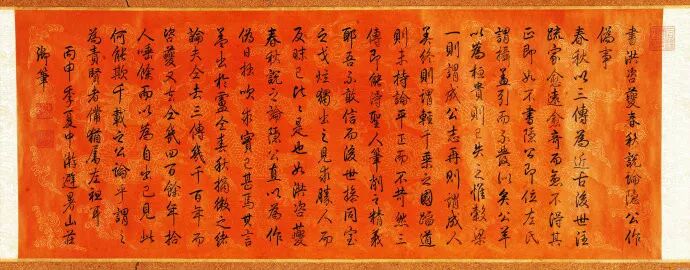 書洪咨夔春秋說論隱公作
偽事
春秋以三傳為近古後世注
疏家愈遠愈奇而愈不得其
正即如不書隱公即位左氏
謂攝蓋引而不發以矣公羊
以為桓貴則已失之惟穀梁
一則謂成公志再則謂成人
美終則謂輕千乘之國蹈道
則未持論平正而不苛然三
傳即能得聖人筆削之精義
耶吾不敢信而後世操同室
之戈炫獨出之見求勝人而
反昧己比比是也如洪咨夔
春秋說之論隱公直以為作
偽日拙吹求實已甚焉其言
蓋出於盧仝春秋摘微之緒
論夫仝去三傳幾千百年而
咨夔又去仝幾四百餘年拾
人唾餘而以為自出己見此
何能欺千載之公論乎謂之
為責賢者備猶屬左袒耳
丙申季夏中澣避暑山莊
御筆